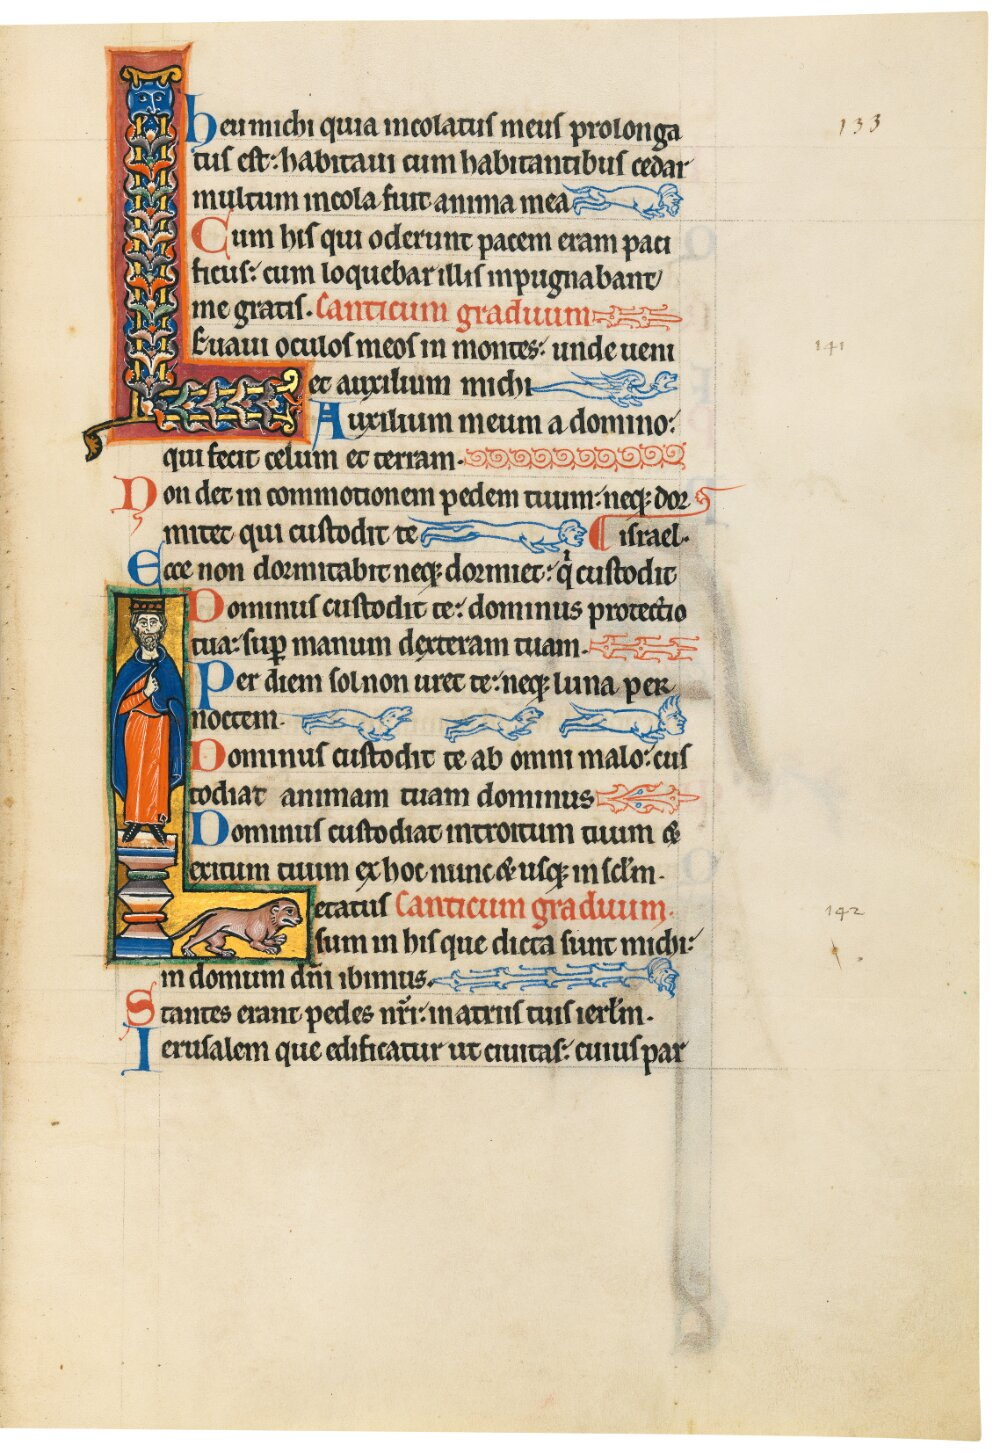 heu michi quia incolatus meus prolonga
133
tus est: habitaui cum habitantibus cedar
multum incola fuit anima mea
Cum his qui oderunt pacem eram paci
ficus: cum loquebar illis inpugnabant
me gratis. Canticum graduum
Leuaui oculos meos in montes: unde ueni
141
et auxilium michi
Auxilium meum a domino:
qui fecit celum et terram.
Non det in commotionem pedem tuum: neq; dor
mitet qui custodit te israel.
Ecce non dormitabit neq; dormiet: qi custodit
Dominus custodit te: dominus protectio
tua: sup manum dexteram tuam.
Per diem sol non uret te: neq; luna per
noctem.
Dominus custodit te ab omni malo: cus
todiat animam tuam dominus
Dominus custodiat introitum tuum &
exitum tuum ex hoc nunc & usq; in sclm.
Letatus Canticum graduum.
142
sum in his que dicta sunt michi:
in domum dni ibimus.
Stantes erant pedes nri: in atriis tuis ierlm.
Ierusalem que edificatur ut ciuitas: cuius par